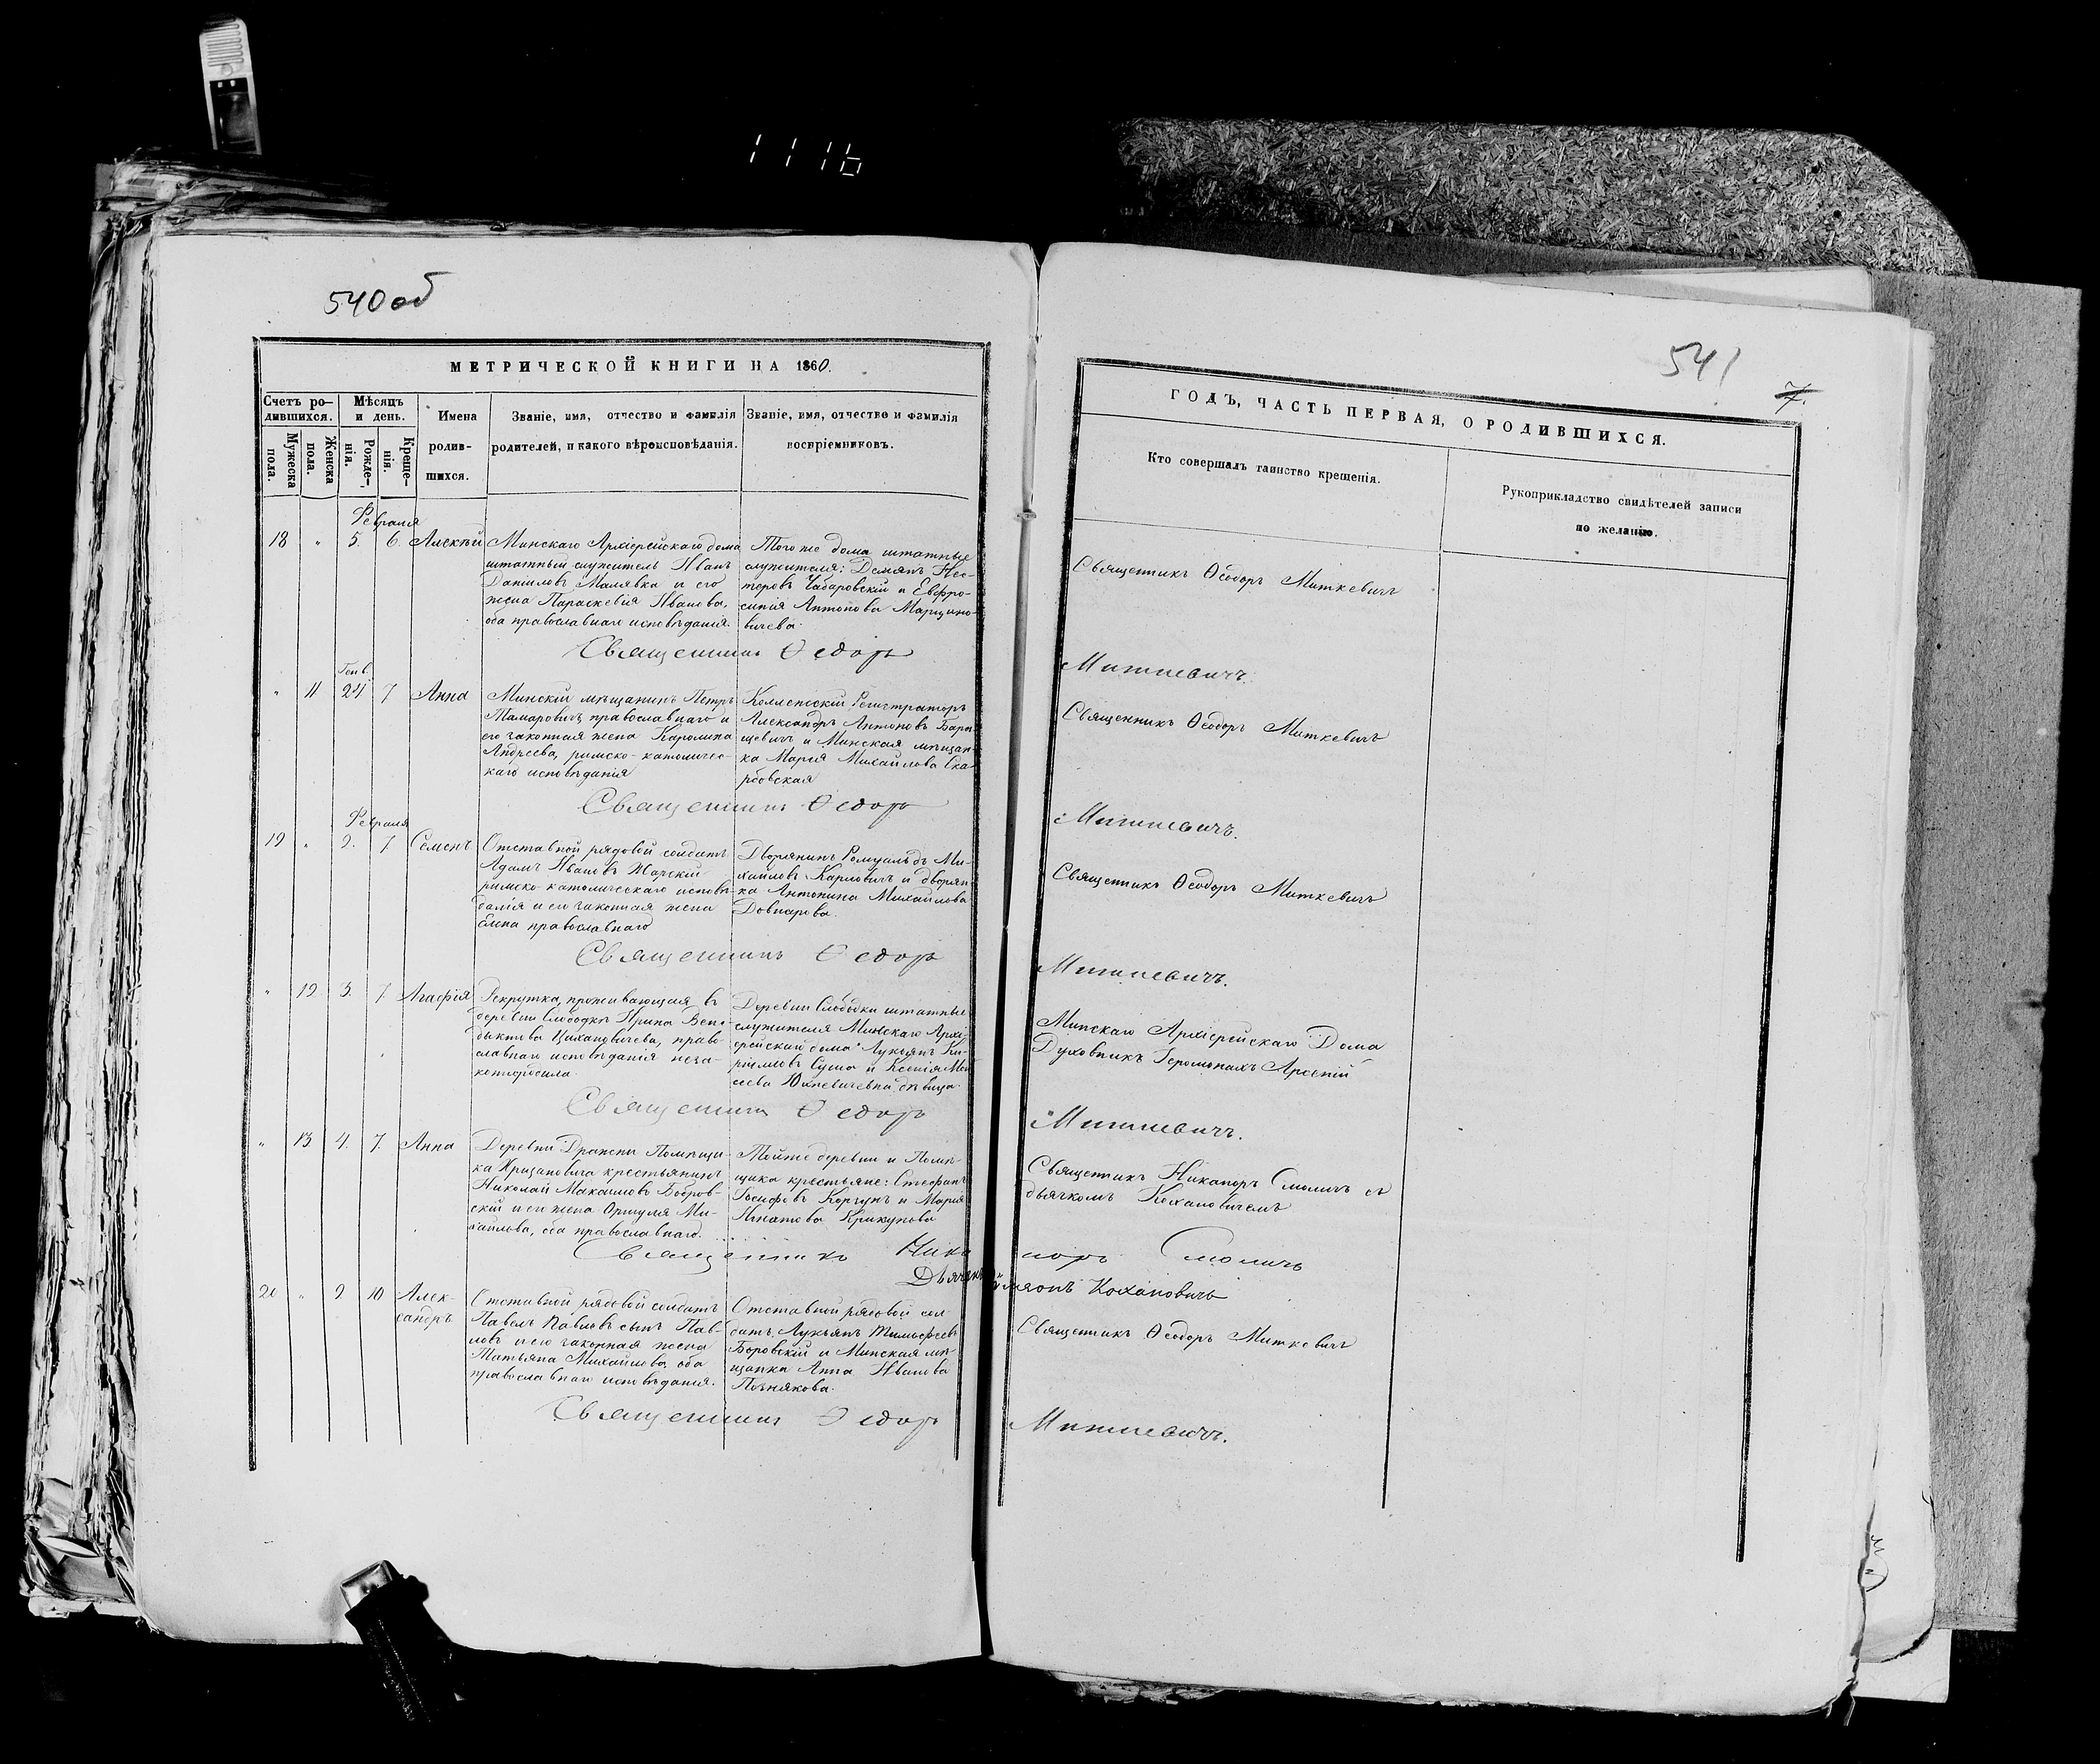 1116
540 об
МЕТРИЧЕСКОЙ КНИГИ НА 1860.
Счетъ ро-
дившихся.
Мужеска
пола.
Женска
пола.
Мѣсяцъ
и день.
Рожде-
нія.
Креще-
нія.
Имена
родив-
шихся.
Званіе, имя, отчество и фамилія
родителей, и какого вѣроисповѣданія.
Званіе, имя, отчество и фамилія
воспріемниковъ.
Февраля
18 " 5. 6. Алексѣй
Минскаго Архіерейскаго дома
штатный служитель Иванъ
Даніиловъ Малявка и его
жена Параскевія Иванова,
оба православнаго исповѣданія.
Того же дома штатные
служителя: Демянъ Нес-
теровъ Чабаровскій и Евфро-
синія Антонова Марцино-
вичева.
Священникъ Ѳеодоръ
Генв.
" 11 24 7 Анна
Минскій мѣщанинъ Петръ
православнаго и
его законная жена Каролина
Андреева, римско-католичес-
каго исповѣданія
Коллежскій Регистраторъ
Александръ Антоновъ
и Минская мѣщан-
ка Марія Михайлова Ска-
рбовская
Священникъ Ѳеодоръ
Февраля
19 " 2. 7 Семенъ
Отставной рядовой солдатъ
Адамъ Ивановъ Жарскій
римско-католическаго исповѣ-
данія и его законная жена
Елена православнаго
Дворянинъ Ромуальдъ Ми-
хайловъ Карловичъ и дворян-
ка Антонина Михайлова
Довнарова.
Священникъ Ѳеодоръ
" 12 3. 7 Агафія
Рекрутка, проживающая въ
деревни Слободкѣ Ирина Вени-
диктова Цихановичева, право-
славнаго исповѣданія неза-
коннорожденная
Деревни Слободки штатные
служителя Минскаго Архі-
ерейскаго дома Лукьянъ Ки-
рилловъ Суша и Ксенія Мои-
сеева Юхневичевна дѣвица.
Священникъ Ѳеодоръ
" 13 4. 7. Анна
Деревни Дражни Помѣщи-
ка Хрщановича крестьянинъ
Николай Макаимовъ Бобров-
скій и его жена Оршуля Ми-
хайлова, оба православнаго.
Тойже деревни и Помѣ-
щика крестьяне: Стефанъ
Іосифовъ Коргунъ и Марія
Игнатова Крикунова
Священникъ Ника
Дьячекъ
20 " 9 10 Алек-
сандръ
Отставной рядовой солдатъ
Павелъ Павловъ сынъ Пав-
ловъ и его законная жена
Татьяна Михайлова, оба
православнаго исповѣданія.
Отставной рядовой сол-
датъ Лукьянъ Тимофеевъ
Боровскій и Минская мѣ-
щанка Анна Иванова
Познякова.
Священникъ Ѳеодоръ
541
7.
ГОДЪ, ЧАСТЬ ПЕРВАЯ, О РОДИВШИХСЯ.
Кто совершалъ таинство крещенія.
Рукоприкладство свидѣтелей записи
по желанію.
Священникъ Ѳеодоръ Миткевичъ
Миткевичъ.
Священникъ Ѳеодоръ Миткевичъ
Миткевичъ.
Священникъ Ѳеодоръ Миткевичъ
Миткевичъ.
Минскаго Архіерейскаго Дома
Духовникъ Іеромонахъ Арсеній
Миткевичъ.
Священникъ Никаноръ Смоличъ съ
дьячкомъ Кохановичемъ
норъ Смоличъ
Кохановичъ
Священникъ Ѳеодоръ Миткевичъ
Миткевичъ.